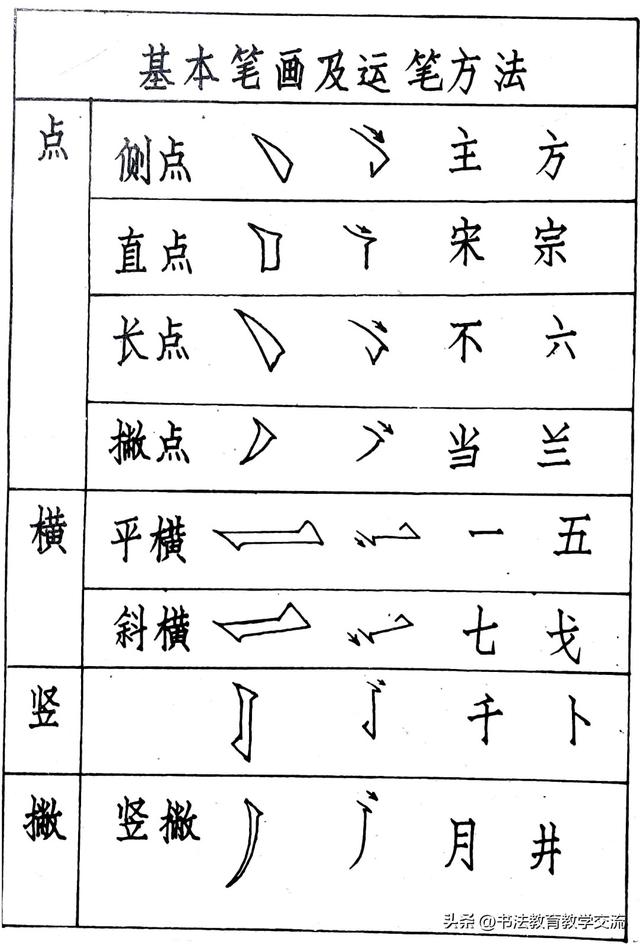 基本笔画及运笔方法
点 侧点 主 方
直点 宋 宗
长点 不 六
撇点 当 兰
横 平横 一 五
斜横 七 戈
竖 千 卜
撇 竖撇 月 井
头条 @书法教育教学交流